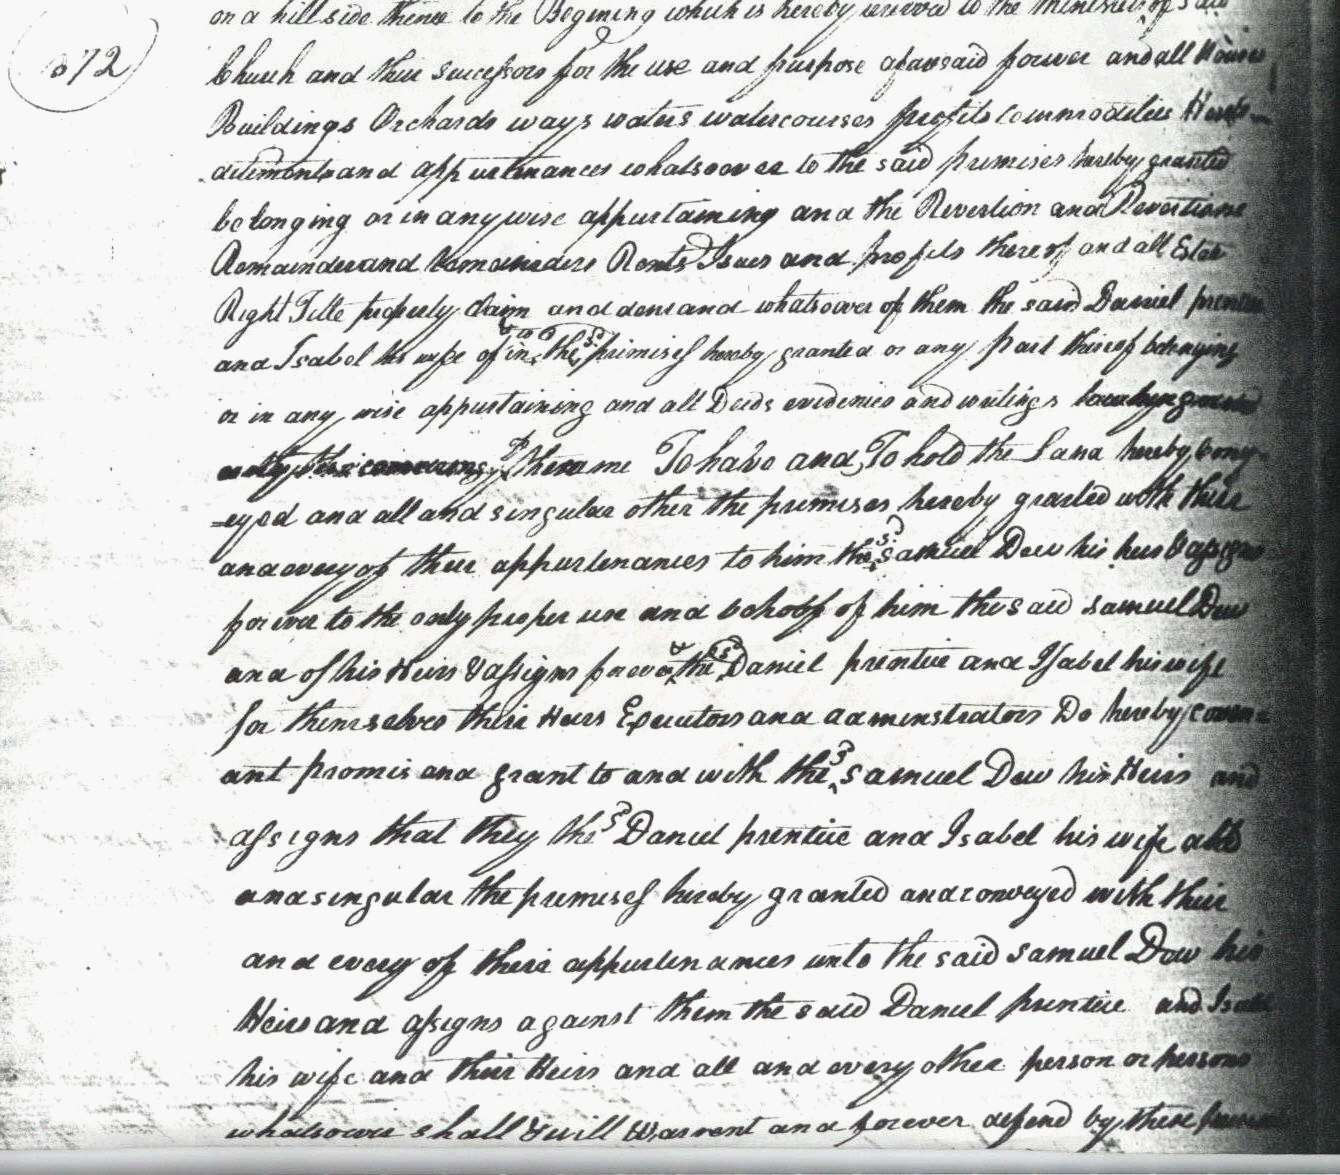 on a hill side thence to the Begining which is hereby reserved to the Minister of Said
372
Church and their successors for the use and purpose aforesaid forever and all Houses
Buildings Orchards ways waters watercourses profits Commodities Heredi-
-detiments and appurtinances whatsoever to the said premises hereby granted
belonging or in any wise appurtaining and the Revertion and Revertions
Remainder and Remainders Rents Isues and profits thereof and all Estate
Right Title property Claim and demand whatsoever of them the said Daniel prentice
and Isabel his wife of in & to the sd premises hereby granted or any part thereof belonging
or in any wise appurtaining and all Deeds evidencies and writings
the same To have and To hold the Land hereby Convey-
=eyed and all and singular other the premises hereby granted with their
and every of their appurtenances to him the sd Samuel Dew his heirs & assigns
forever to the only proper use and behoof of him the said Samuel Dew
and of his Heirs & assigns forever & the sd Daniel prentice and Isabel his wife
for themselves their Heirs Executors and adminstrators Do hereby coven=
ant promis and grant to and with the sd Samuel Dew his Heirs and
assigns that they the sd Daniel prentice and Isabel his wife all
and singular the premises hereby granted and conveyed with their
and every of their appurtenances unto the said Samuel Dew his
Heirs and assigns against them the said Daniel prentice and Isabel
his wife and their Heirs and all and every other person or persons
whatsoever shall & will Warrent and forever defend by these presents